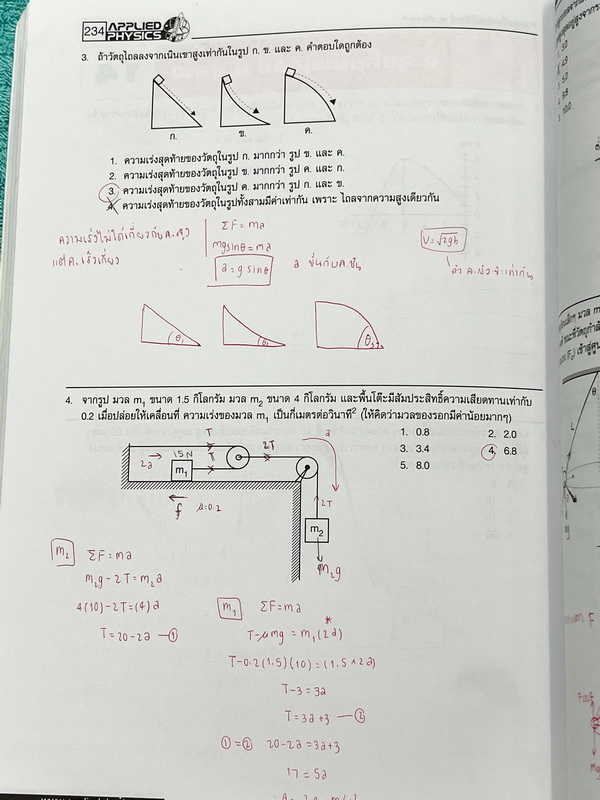 234 APPLIED PHYSICS
3. ถ้าวัตถุไถลลงจากเนินเขาสูงเท่ากันในรูป ก. ข. และ ค. คำตอบใดถูกต้อง
ก. ข. ค.
1. ความเร่งสุดท้ายของวัตถุในรูป ก. มากกว่า รูป ข. และ ค.
2. ความเร่งสุดท้ายของวัตถุในรูป ข. มากกว่ารูป ค. และ ก.
3. ความเร่งสุดท้ายของวัตถุในรูป ค. มากกว่ารูป ก. และ ข.
4. ความเร่งสุดท้ายของวัตถุในรูปทั้งสามมีค่าเท่ากัน เพราะ ไถลจากความสูงเดียวกัน
ความเร่งไม่ได้เกี่ยวกับค.สูง
แต่ ค.เร็วเกี่ยว
ΣF = ma
mgsinθ = ma
a = g sinθ
a ขึ้นกับค.ชัน
V = √2gh
θ₁
4. จากรูป มวล m₁ ขนาด 1.5 กิโลกรัม มวล m₂ ขนาด 4 กิโลกรัม และพื้นโต๊ะมีสัมประสิทธิ์ความเสียดทานเท่ากับ
0.2 เมื่อปล่อยให้เคลื่อนที่ ความเร่งของมวล m₁ เป็นกี่เมตรต่อวินาที² (ให้คิดว่ามวลของรอกมีค่าน้อยมากๆ)
1. 0.8 2. 2.0
3. 3.4 4. 6.8
5. 8.0
T T 2T a
2a 15N m₁
f μ=0.2
2T
m₂
m₂g
m₂ ΣF = ma
m₂g - 2T = m₂a
4(10) - 2T = (4)a
T = 20 - 2a — ①
m₁ ΣF = ma
T - μmg = m₁(2a) *
T - 0.2(1.5)(10) = (1.5 × 2a)
T - 3 = 3a
T = 3a + 3 — ②
① = ② 20 - 2a = 3a + 3
17 = 5a